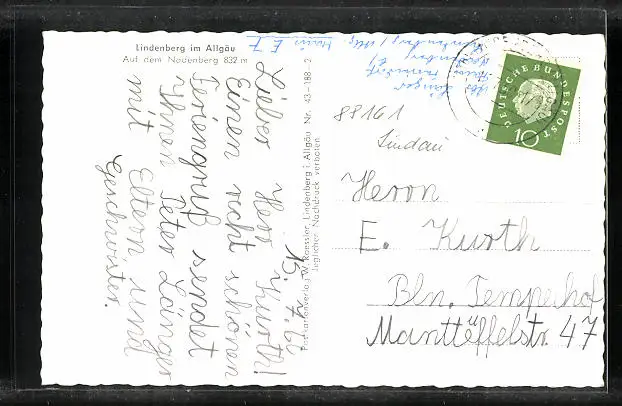 Lindenberg im Allgäu
Auf dem Nadenberg 832 m
15. 7. 62
Lieber Herr Kurth!
Einen recht schönen
Feriengruß sendet
Ihnen Peter Länger
mit Eltern und
Geschwister.
Postkartenverlag W. Roessler, Lindenberg i. Allgäu Nr. 43-188-2
Jeglicher Nachdruck verboten
Länger
Lindenberg / Allg
88161
Lindau
DEUTSCHE BUNDESPOST
10
Herrn
E. Kurth
Bln. Tempelhof
Manteüffelstr. 47